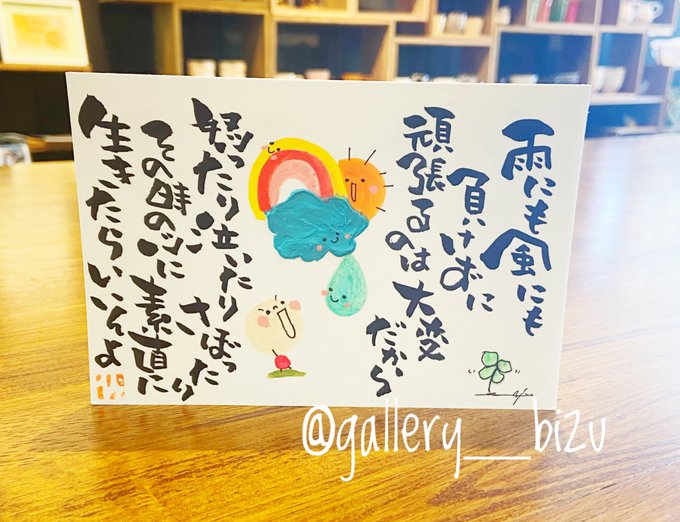 雨にも風にも
負けずに
頑張るのは大変
だから
怒ったり泣いたり
さぼったり
その時の心に素直に
生きたらいいんよ
@gallery__bizu